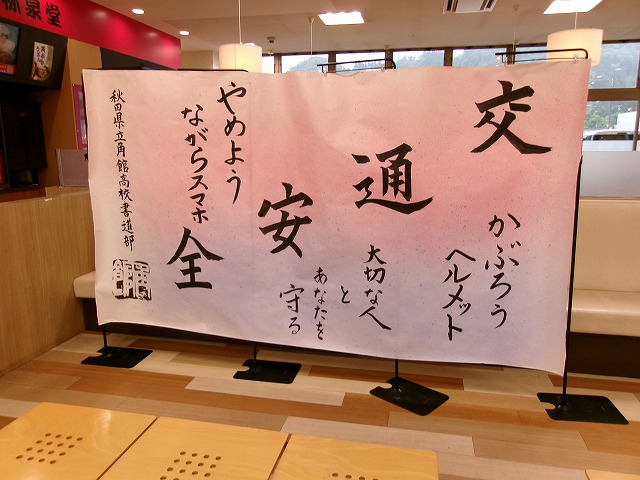 交通安全
かぶろう
ヘルメット
大切な人
と
あなたを
守る
やめよう
ながらスマホ
秋田県立角館高校書道部
林泉堂